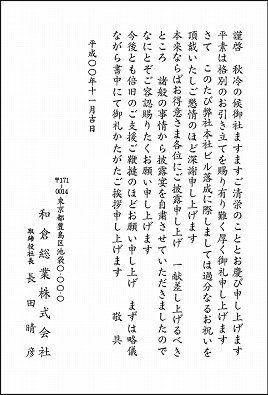 謹啓　秋冷の候御社ますますご清栄のこととお慶び申し上げます
平素は格別のお引き立てを賜り有り難く厚く御礼申し上げます
さて　このたび弊社本社ビル落成に際しましては過分なるお祝いを
頂戴いたしご懇情のほど深謝申し上げます
本来ならばお得意さま各位にご披露申し上げ　一献差し上げるべき
ところ　諸般の事情から披露宴を自粛させていただきましたので
なにとぞご容認賜りたくお願い申し上げます
今後とも倍旧のご支援ご鞭撻のほどお願い申し上げ　まずは略儀
ながら書中にて御礼かたがたご挨拶申し上げます
敬具
平成〇〇年十一月吉日
〒171-0014
東京都豊島区池袋〇-〇〇〇
和倉総業株式会社
取締役社長　長田晴彦